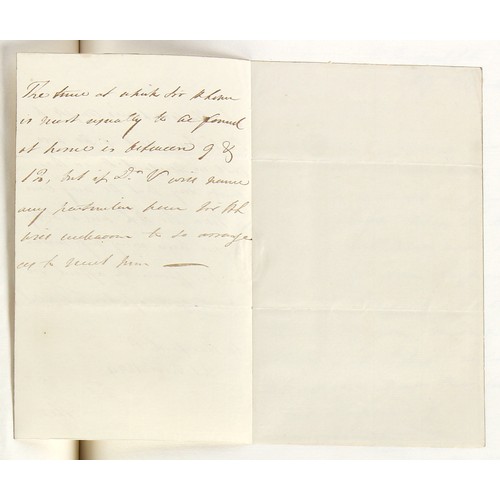 The time at which Sir
is most usually to be found
at home is between 9 &
12, but if Dr. V will name
any particular hour Sir
will endeavour to so arrange
as to meet him —